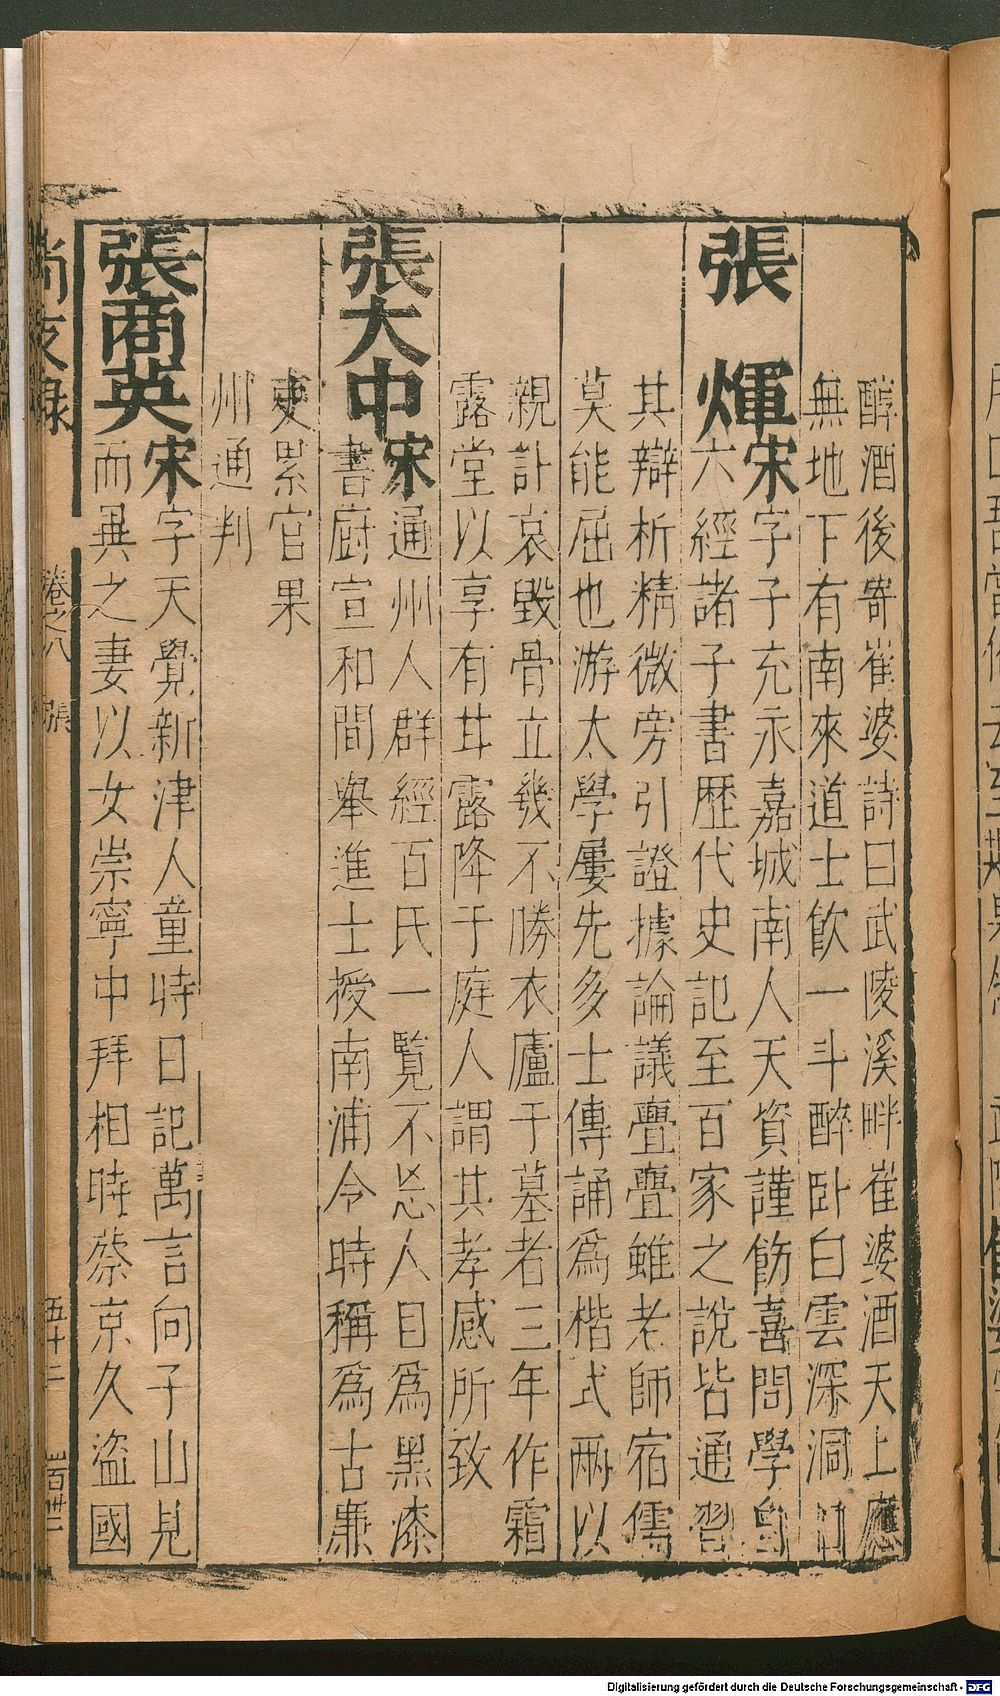 醉酒後寄崔婆詩曰武陵溪畔崔婆酒天上應
無地下有南來道士飲一斗醉臥白雲深洞口
張煇宋字子充永嘉城南人天資謹飭喜問學自
六經諸子書歷代史記至百家之說皆通習
其辯析精微旁引證據論議亹亹雖老師宿儒
莫能屈也游太學屢先多士傳誦為楷式兩以
親訃哀毀骨立幾不勝衣廬于墓者三年作霜
露堂以享有甘露降于庭人謂其孝感所致
張大中宋通州人群經百氏一覽不忘人目為黑漆
書厨宣和間舉進士授南浦令時稱為古廉
吏累官果
州通判
張商英宋字天覺新津人童時日記萬言向子山見
而異之妻以女崇寧中拜相時蔡京久盜國
尚友錄
卷之八
張
五十二
Digitalisierung gefördert durch die Deutsche Forschungsgemeinschaft - DFG